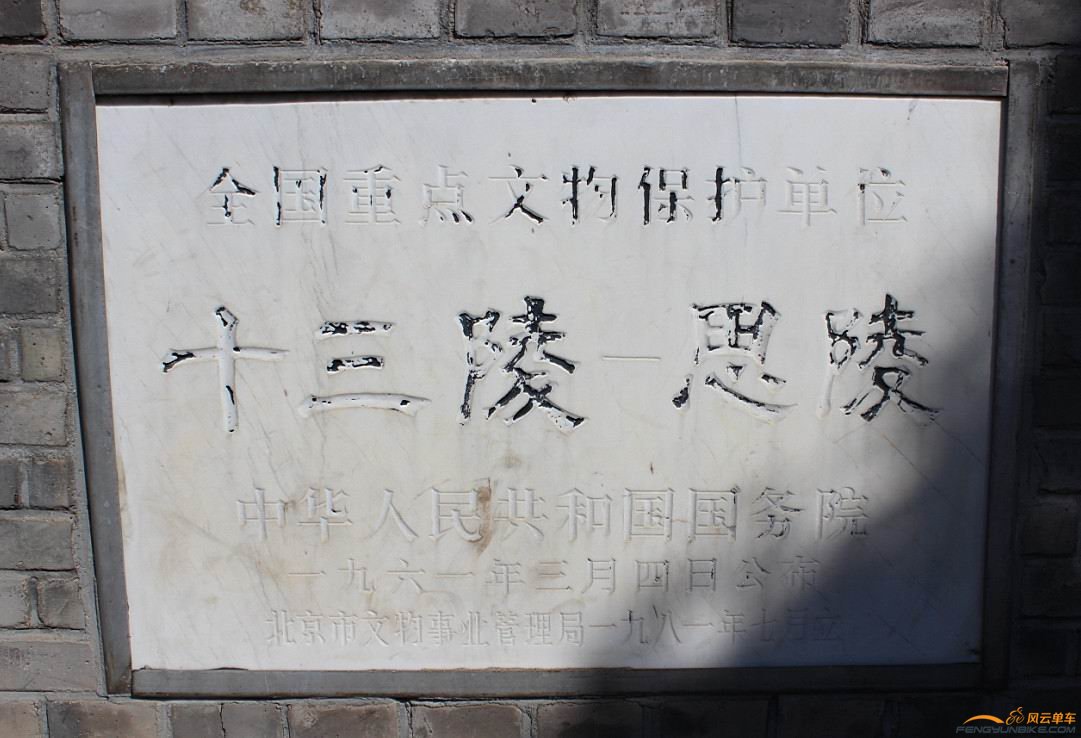 全国重点文物保护单位
十三陵—思陵
中华人民共和国国务院
一九六一年三月四日公布
北京市文物事业管理局一九八一年七月立
风云单车
FENGYUNBIKE.COM